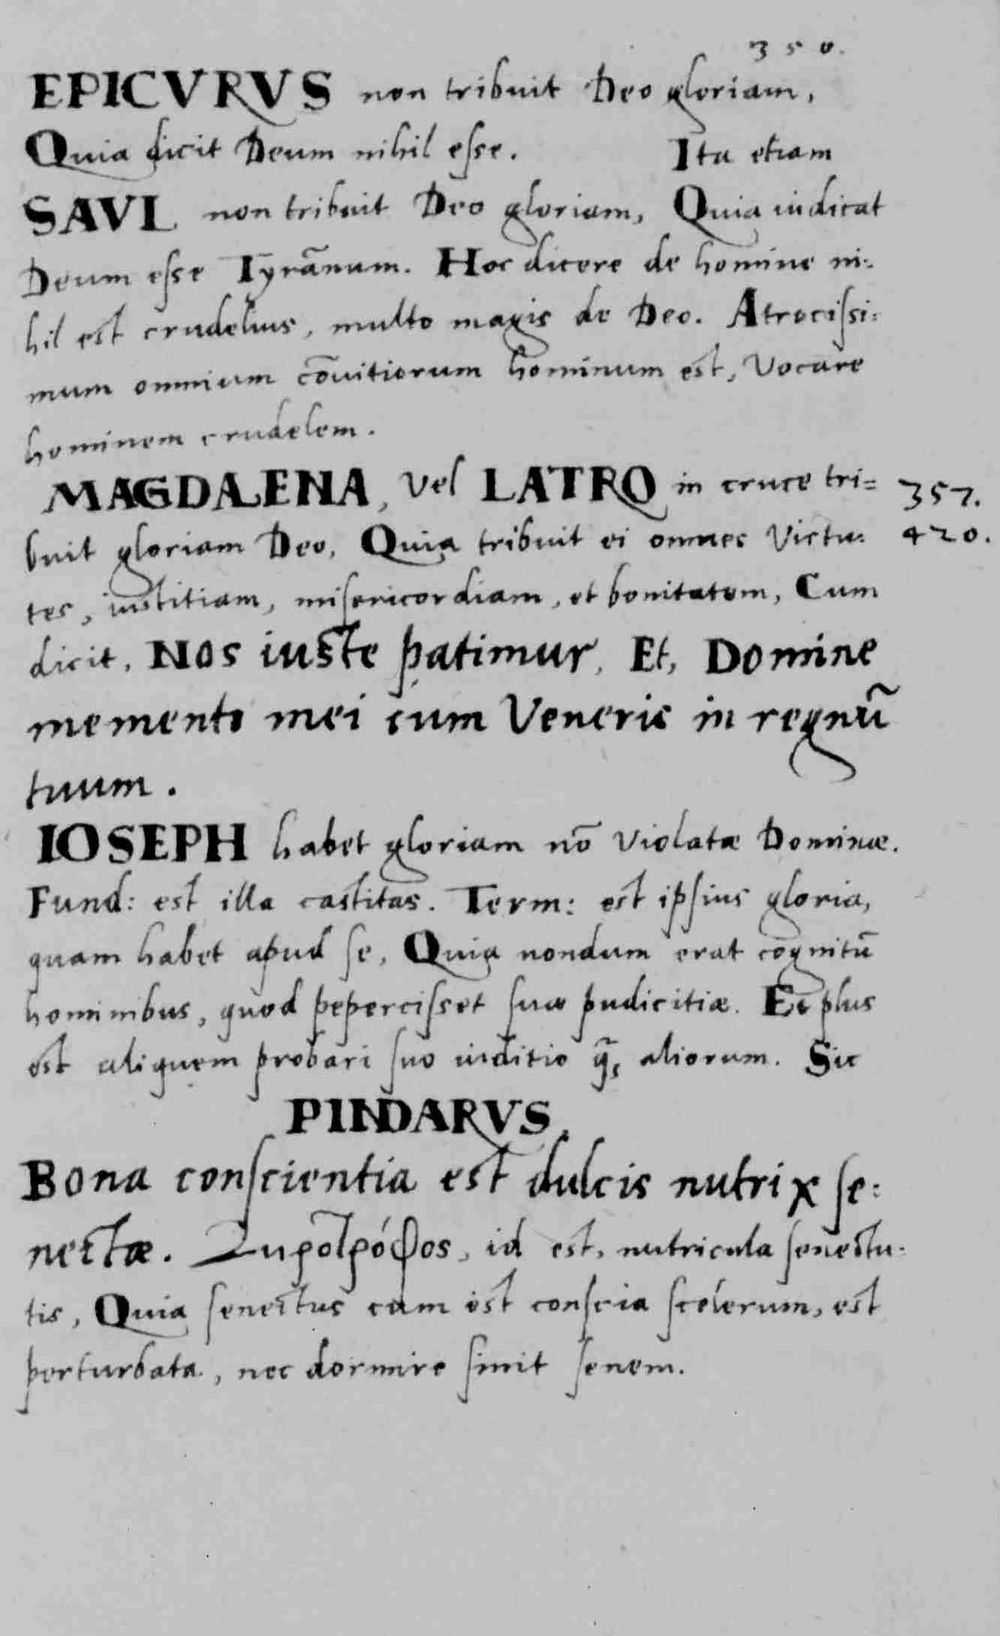 350.
EPICVRVS non tribuit Deo gloriam,
Quia dicit Deum nihil esse. Ita etiam
SAVL non tribuit Deo gloriam, Quia iudicat
Deum esse Tyrãnum. Hoc dicere de homine ni:
hil est crudelius, multo magis de Deo. Atrocissi:
mum omnium cõuitiorum hominum est, Vocare
hominem crudelem.
MAGDALENA, vel LATRO in cruce tri= 357.
buit gloriam Deo, Quia tribuit ei omnes Virtu: 420.
tes, iustitiam, misericordiam, et bonitatem, Cum
dicit, Nos iuste patimur, Et, Domine
memento mei cum Veneris in regnũ
tuum.
IOSEPH habet gloriam nõ violatæ Dominæ.
Fund: est illa castitas. Term: est ipsius gloria,
quam habet apud se, Quia nondum erat cognitũ
hominibus, quod pepercisset suæ pudicitiæ. Et plus
est aliquem probari suo iuditio q̃ȝ aliorum. Sic
PINDARVS,
Bona conscientia est dulcis nutrix se:
nectæ. Ζηροτρόφος, id est, nutricula senectu:
tis, Quia senectus cum est conscia scelerum, est
perturbata, nec dormire sinit senem.